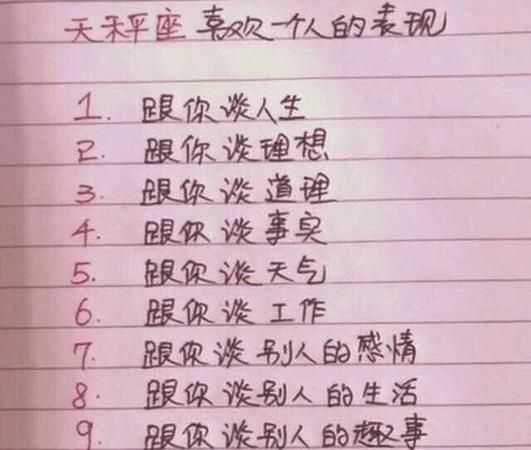 天秤座 喜欢一个人的表现
1. 跟你谈人生
2. 跟你谈理想
3. 跟你谈道理
4. 跟你谈事实
5. 跟你谈天气
6. 跟你谈工作
7. 跟你谈别人的感情
8. 跟你谈别人的生活
9. 跟你谈别人的趣事